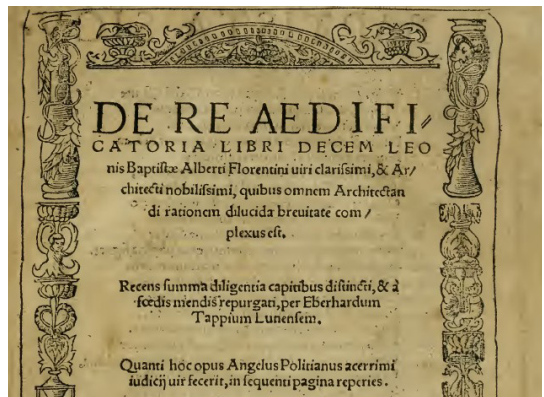 DE RE AEDIFI⸗
CATORIA LIBRI DECEM LEO
nis Baptistæ Alberti Florentini uiri clarissimi, & Ar/
chitecti nobilissimi, quibus omnem Architectan
di rationem dilucida breuitate com /
plexus est.
Recens summa diligentia capitibus distincti, & à
fœdis mendis repurgati, per Eberhardum
Tappium Lunensem.
Quanti hoc opus Angelus Politianus acerrimi
iudicij uir fecerit, in sequenti pagina reperies.